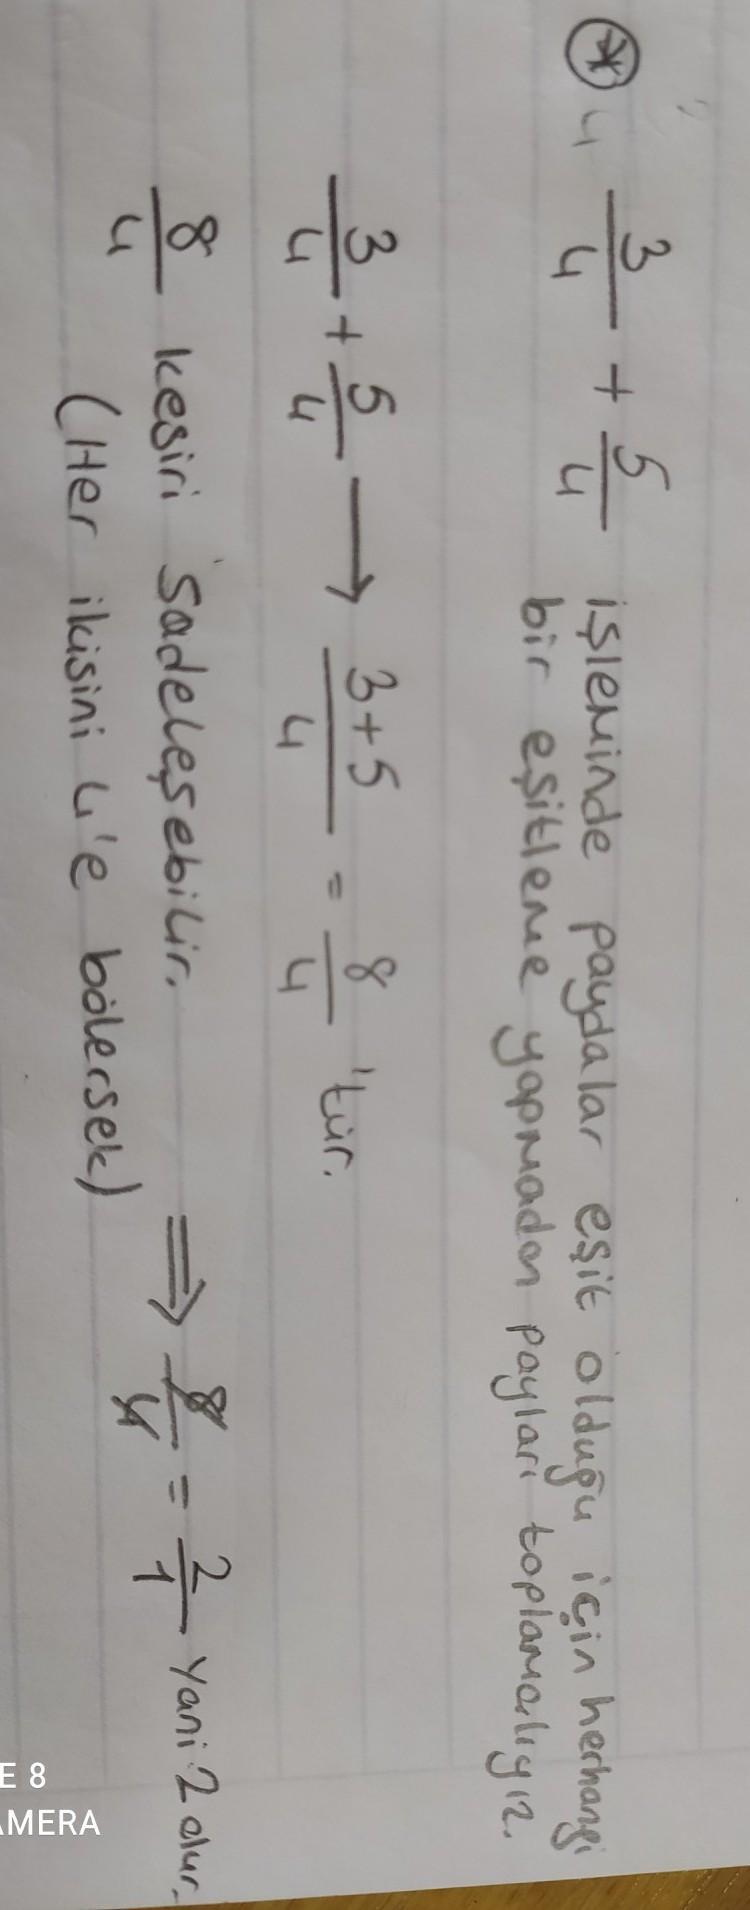 ⊛ 4 3/4 + 5/4 işleminde paydalar eşit olduğu için herhangi
bir eşitleme yapmadan payları toplamalıyız.
3/4 + 5/4 → 3+5/4 = 8/4 'tür.
8/4 kesiri sadeleşebilir. ⇒ 8/4 = 2/1 yani 2 olur.
(Her ikisini 4'e bölersek)
E 8
AMERA